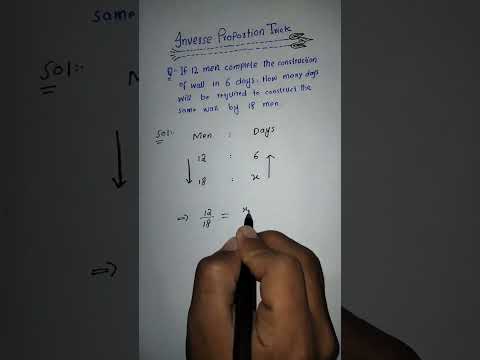 Inverse Proportion Trick
Q:- If 12 men complete the construction
of wall in 6 days. How many days
will be required to construct the
same wall by 18 men.
Sol:- Men : Days
12 : 6
18 : x
⇒ 12/18 = x
same
Sol:-
⇒